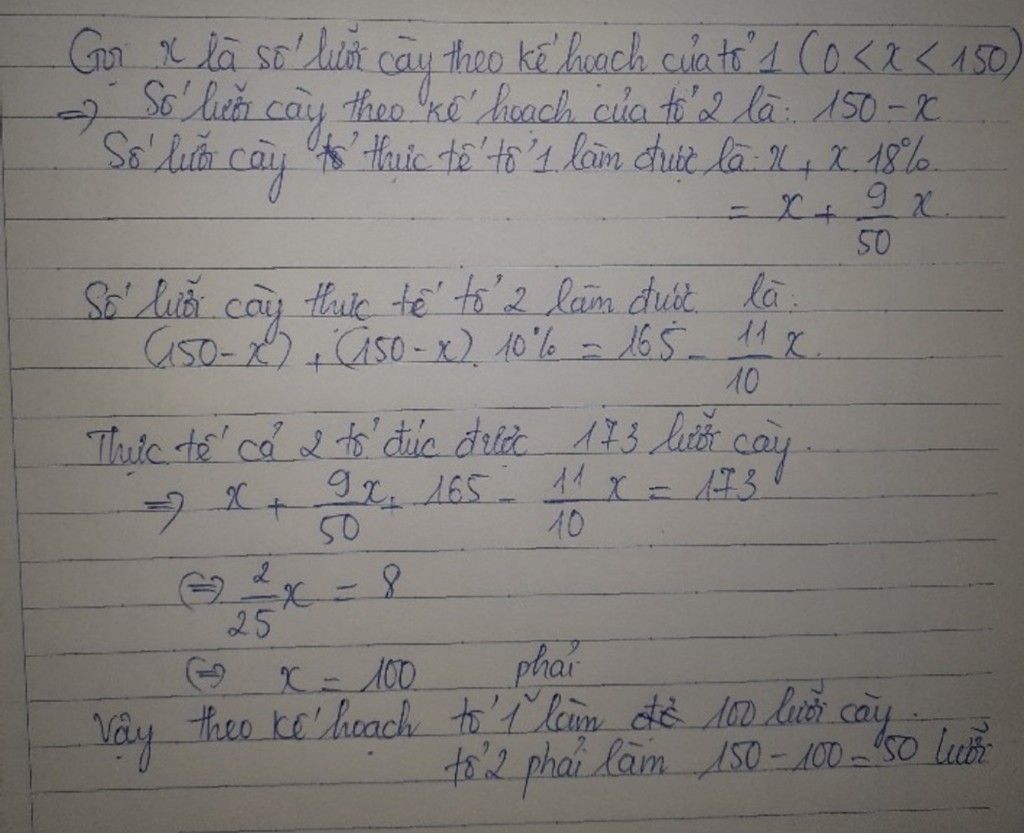 Gọi x là số lưỡi cày theo kế hoạch của tổ 1 (0 < x < 150)
⇒ Số lưỡi cày theo kế hoạch của tổ 2 là: 150 - x
Số lưỡi cày thực tế tổ 1 làm được là: x + x. 18%.
= x + 9/50 x.
Số lưỡi cày thực tế tổ 2 làm được là:
(150 - x) + (150 - x) 10% = 165 - 11/10 x.
Thực tế cả 2 tổ đúc được 173 lưỡi cày.
⇒ x + 9x/50 + 165 - 11/10 x = 173
⇔ 2/25 x = 8
⇔ x = 100
Vậy theo kế hoạch tổ 1 phải làm 100 lưỡi cày.
tổ 2 phải làm 150 - 100 = 50 lưỡi